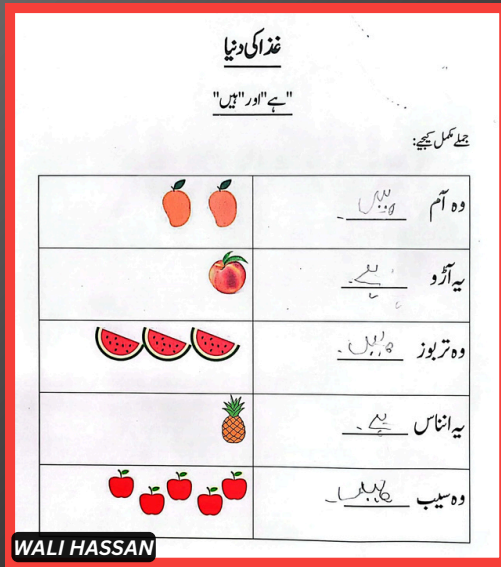 غذا کی دنیا
"ہے" اور "ہیں"
جملے مکمل کیجیے:
وہ آم ہیں۔
یہ آڑو ہے۔
وہ تربوز ہیں۔
یہ انناس ہے۔
وہ سیب ہیں۔
WALI HASSAN